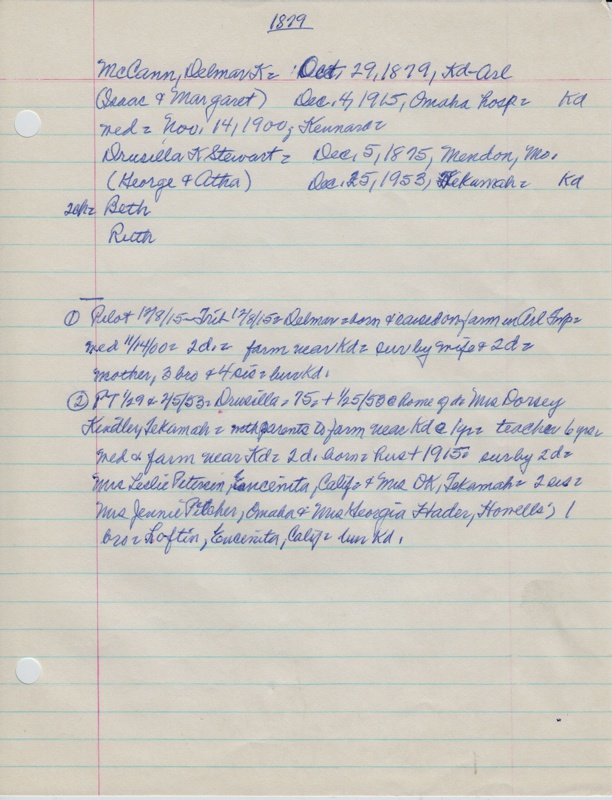 1879
McCann, Delmar K = Oct. 29, 1879, Kd-Arl
(Isaac & Margaret) Dec. 4, 1915, Omaha hosp = Kd
med = Nov. 14, 1900, Kennard =
Drusilla K Stewart = Dec. 5, 1875, Mendon, Mo.
(George & Atha) Dec. 25, 1953, Tekamah = Kd
2ch = Beth
Ruth
① Pilot 12/8/15 - Trib 12/8/15 = Delmar = born & raised on farm in Arl Tnp =
med 11/14/00 = 2d. = farm near Kd = sur by wife & 2d =
mother, 3 bro & 4 sis = bur Kd.
② PT 1/29 & 2/5/53 = Drusilla, 75, + 1/25/53 @ home of da Mrs Dorsey
Kindley, Tekamah = parents to farm near Kd @ 1yr = teacher 6 yrs =
med & farm near Kd = 2d. born = Hus + 1915 = sur by 2d =
Mrs Leslie Petersen, Encenita, Calif = & Mrs OK, Tekamah = 2 sis =
Mrs Jennie Pilcher, Omaha & Mrs Georgia Hader, Howells; 1
bro = Loftin, Encenita, Calif = bur Kd.